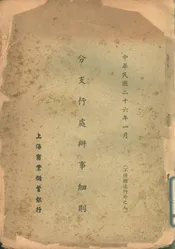 中華民國二十六年一月
分支行處辦事細則
上海商業儲蓄銀行